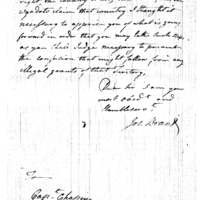 claim that country I thought it
necessary to apprize you of what is going
forward in order that you may take such steps
as you shall Judge necessary to prevent
the confusion that might follow from any
illegal grants of that Territory.
I am
your most obedt. and
Humble
Jos. Brant
To
Capt. Chapin